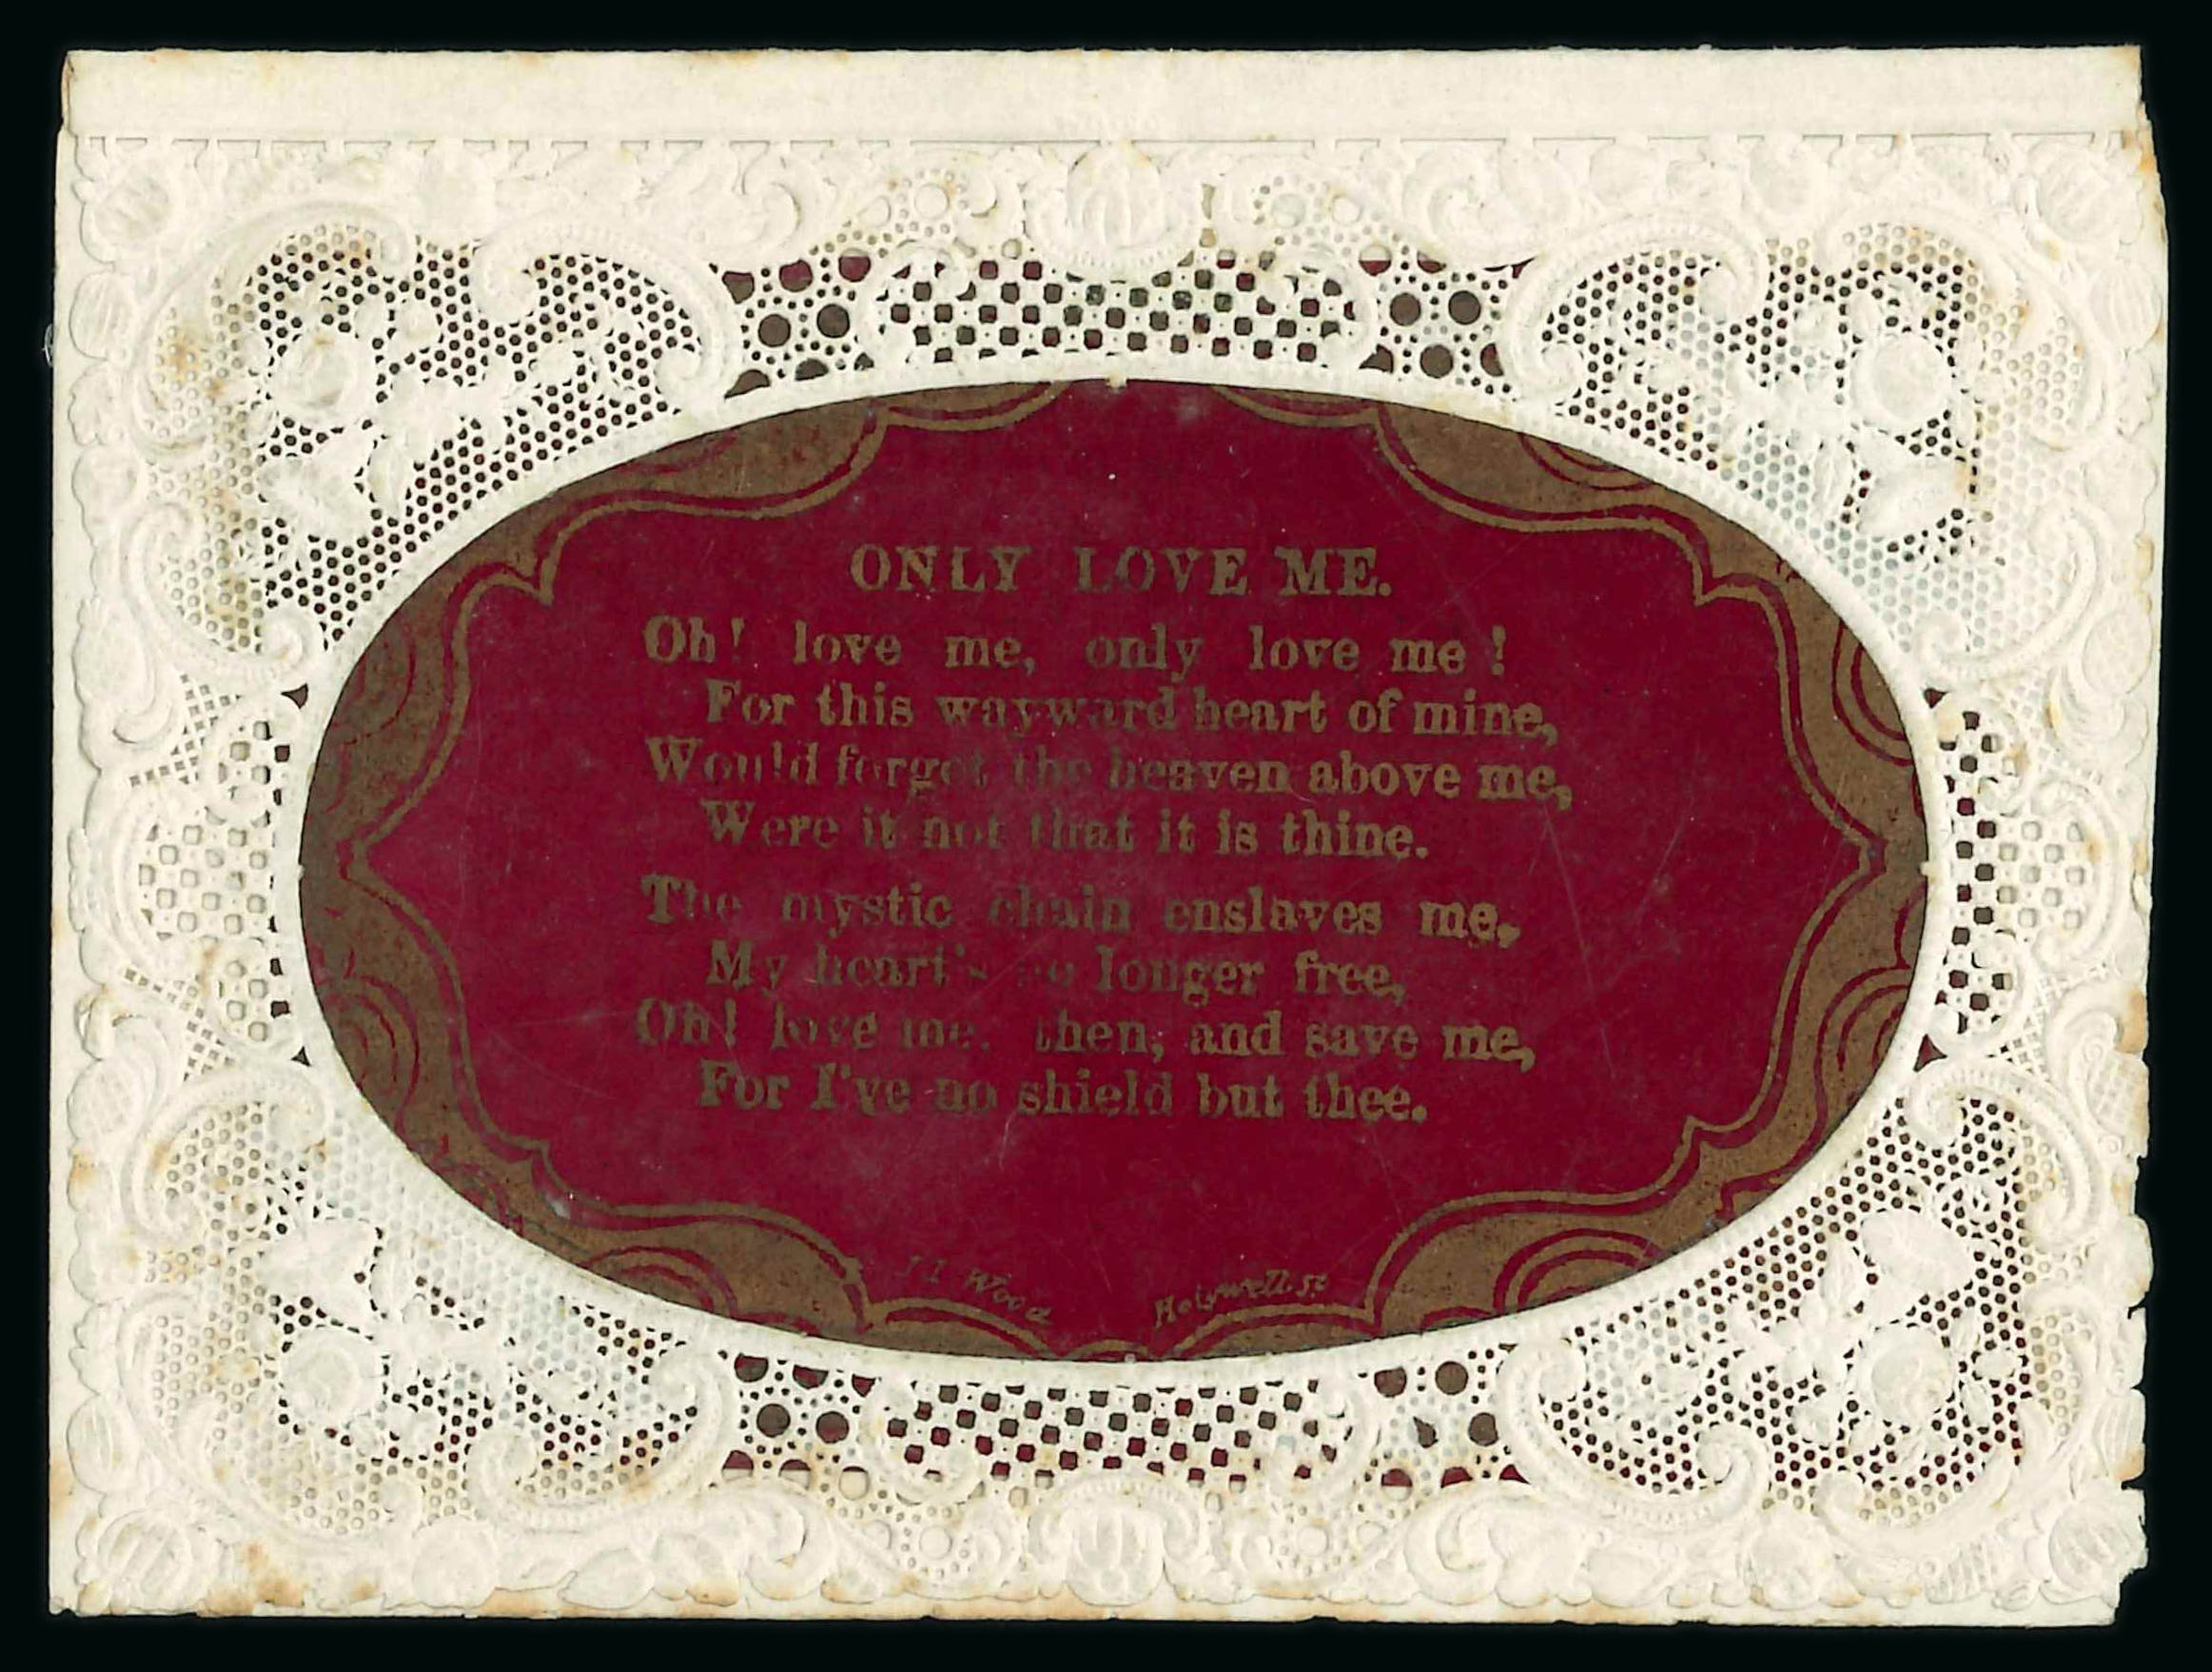 ONLY LOVE ME.
Oh! love me, only love me!
For this wayward heart of mine,
Would forget the heaven above me,
Were it not that it is thine.
The mystic chain enslaves me,
My heart's no longer free,
Oh! love me, then, and save me,
For I've no shield but thee.
J T Wood Holywell. St